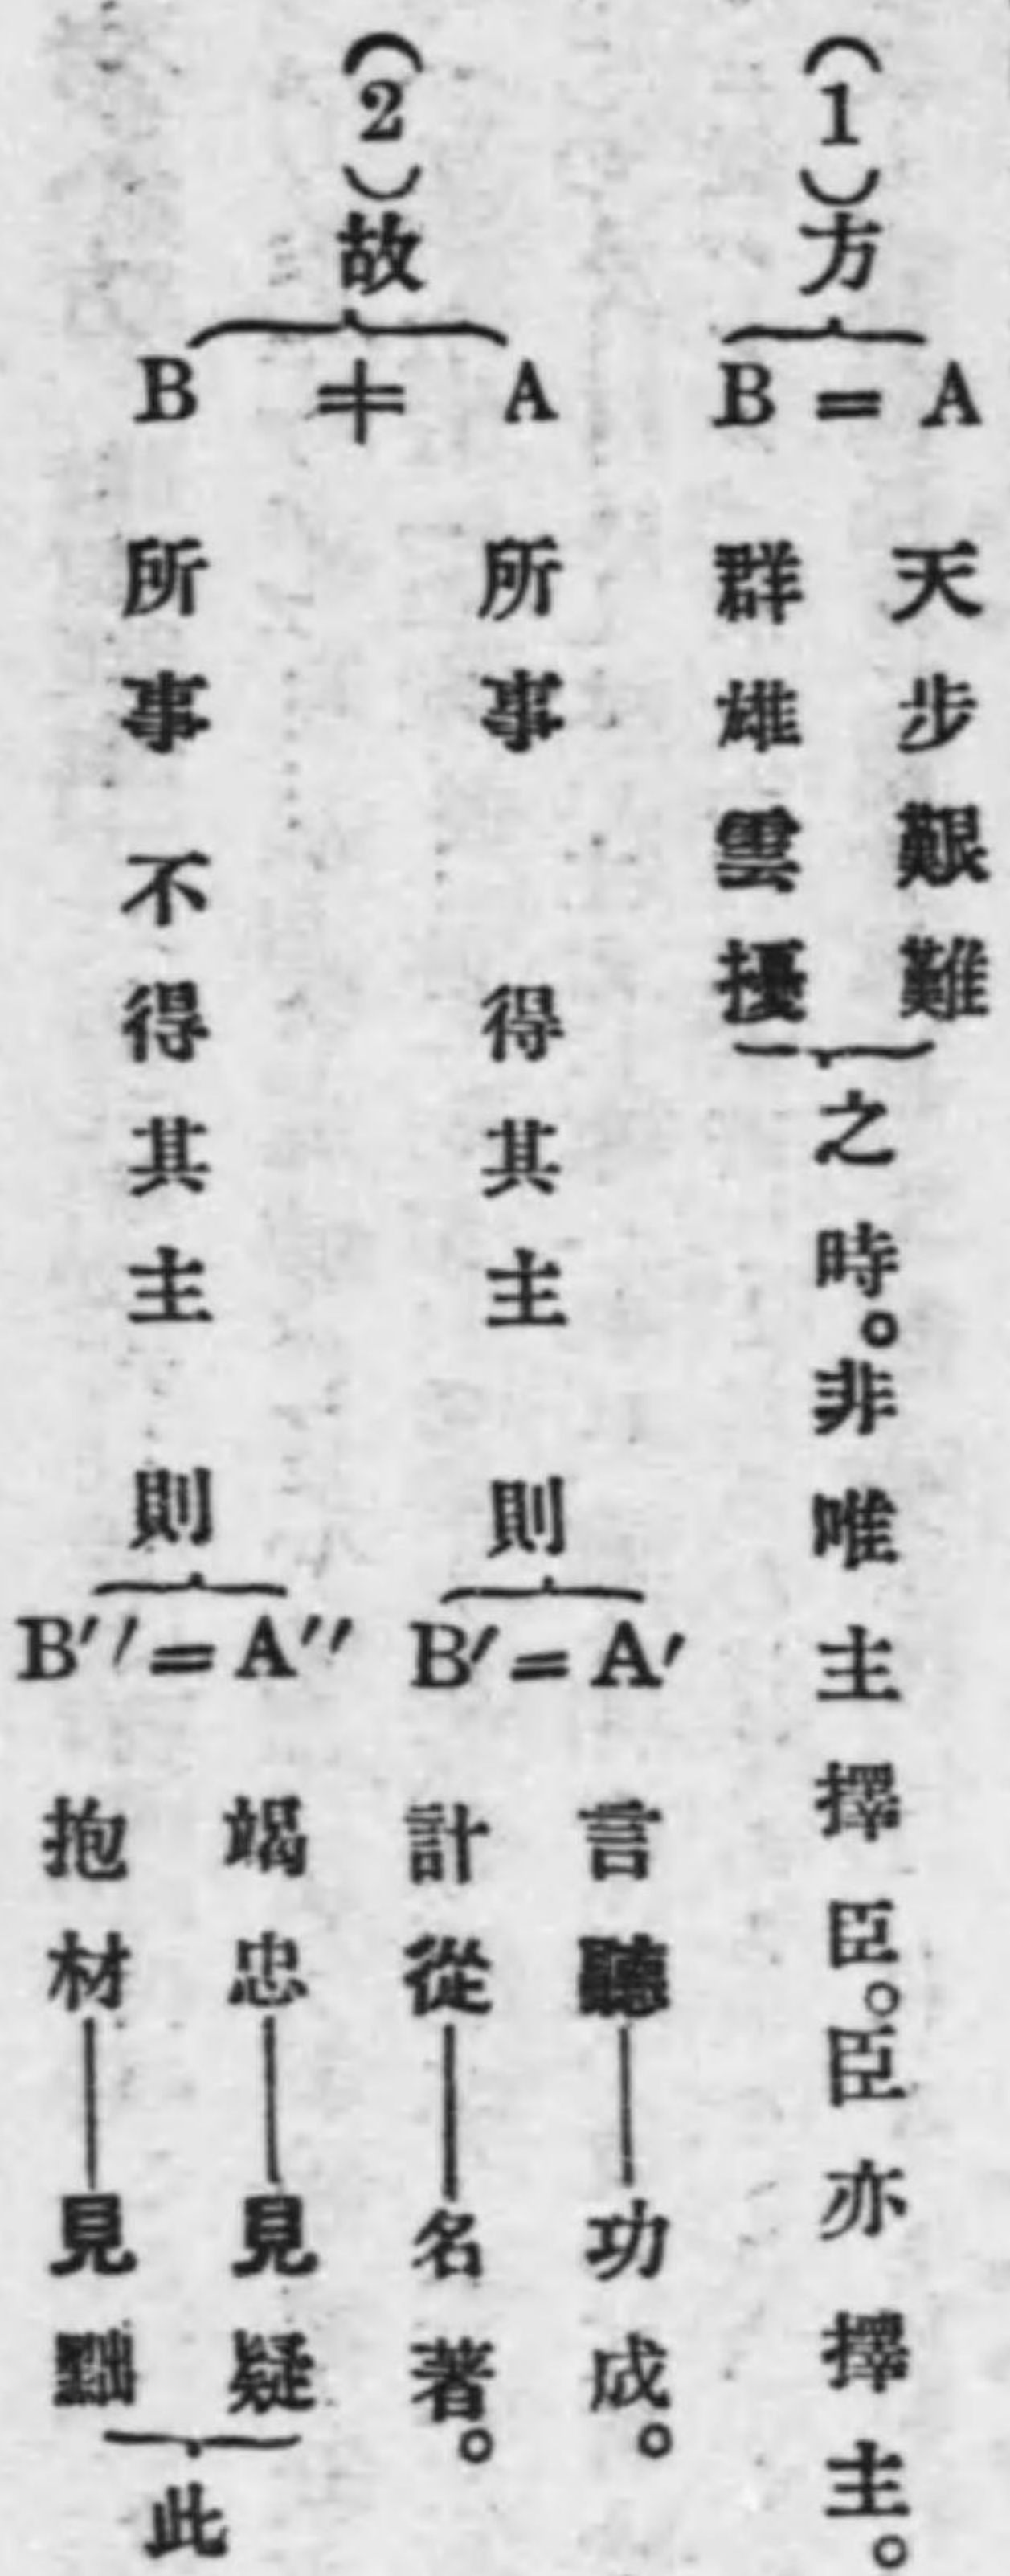 (1)方
A 天步艱難
=
B 群雄雲擾
之時。非唯主擇臣。臣亦擇主。
(2)故
A 所事得其主則
A′ 言聽——功成。
=
B′ 計從——名著。
≠
B 所事不得其主則
A″ 竭忠——見疑
=
B″ 抱材——見黜
此